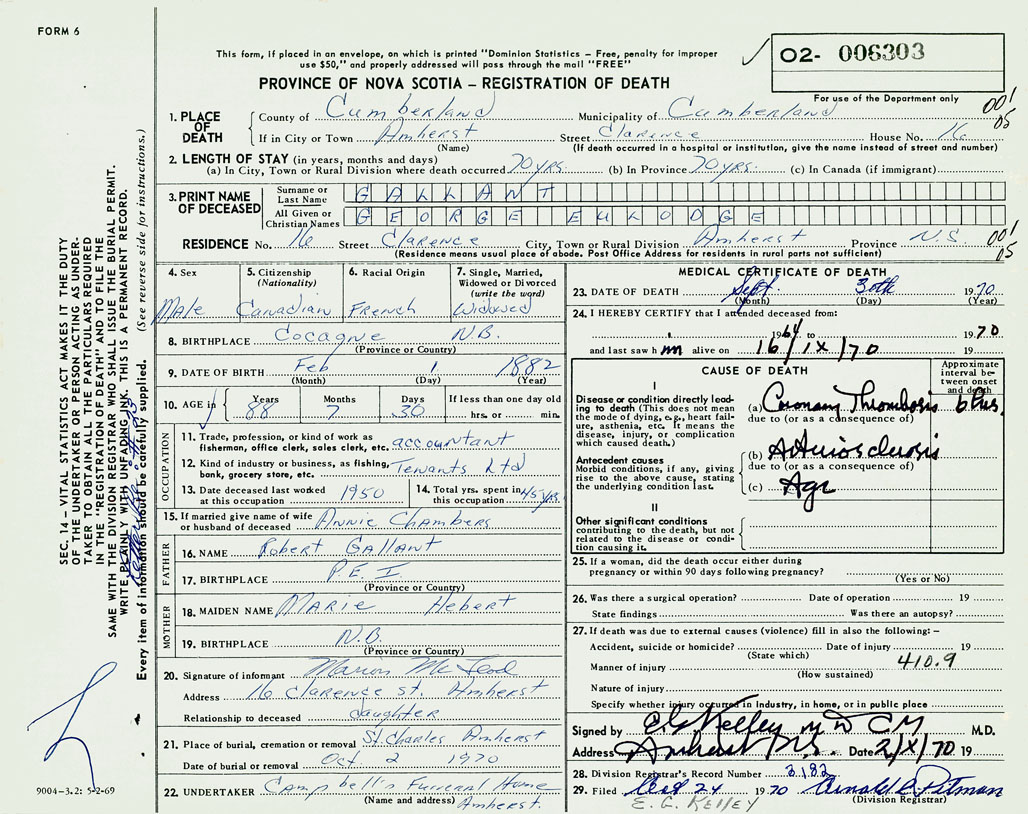 FORM 6
This form, if placed in an envelope, on which is printed "Dominion Statistics – Free, penalty for improper
use $50," and properly addressed will pass through the mail "FREE"
PROVINCE OF NOVA SCOTIA – REGISTRATION OF DEATH
O2- 006303
For use of the Department only
001
05
1. PLACE OF DEATH
County of Cumberland Municipality of Cumberland
If in City or Town Amherst Street Clarence House No. 16
(Name) (If death occurred in a hospital or institution, give the name instead of street and number)
2. LENGTH OF STAY (in years, months and days)
(a) In City, Town or Rural Division where death occurred 70 yrs. (b) In Province 70 yrs. (c) In Canada (if immigrant)
3. PRINT NAME OF DECEASED
Surname or Last Name GALLANT
All Given or Christian Names GEORGE EULODGE
RESIDENCE No. 16 Street Clarence City, Town or Rural Division Amherst Province N.S.
001
05
(Residence means usual place of abode. Post Office Address for residents in rural parts not sufficient)
4. Sex
Male
5. Citizenship (Nationality)
Canadian
6. Racial Origin
French
7. Single, Married, Widowed or Divorced (write the word)
Widowed
8. BIRTHPLACE Cocagne N.B.
(Province or Country)
9. DATE OF BIRTH Feb 1 1882
(Month) (Day) (Year)
10. AGE in Years 88 Months 7 Days 30 If less than one day old hrs. or min.
OCCUPATION
11. Trade, profession, or kind of work as fisherman, office clerk, sales clerk, etc. accountant
12. Kind of industry or business, as fishing, bank, grocery store, etc. Tenants Ltd
13. Date deceased last worked at this occupation 1950
14. Total yrs. spent in this occupation 45 yrs.
15. If married give name of wife or husband of deceased Annie Chambers
FATHER
16. NAME Robert Gallant
17. BIRTHPLACE P.E.I.
(Province or Country)
MOTHER
18. MAIDEN NAME Marie Hebert
19. BIRTHPLACE N.B.
(Province or Country)
20. Signature of informant Marion McLeod
Address 16 Clarence St. Amherst
Relationship to deceased daughter
21. Place of burial, cremation or removal St Charles Amherst
Date of burial or removal Oct 2 1970
22. UNDERTAKER Campbell's Funeral Home
(Name and address) Amherst
MEDICAL CERTIFICATE OF DEATH
23. DATE OF DEATH Sept. 30th 1970
(Month) (Day) (Year)
24. I HEREBY CERTIFY that I attended deceased from:
1964 to 1970
and last saw him alive on 16/IX/70 19
CAUSE OF DEATH
Approximate interval between onset and death
I
Disease or condition directly leading to death (This does not mean the mode of dying, e.g., heart failure, asthenia, etc. It means the disease, injury, or complication which caused death.)
(a) Coronary Thrombosis 6 hrs.
due to (or as a consequence of)
Antecedent causes
Morbid conditions, if any, giving rise to the above cause, stating the underlying condition last.
(b) Arteriosclerosis
due to (or as a consequence of)
(c) Age
II
Other significant conditions
contributing to the death, but not related to the disease or condition causing it.
25. If a woman, did the death occur either during pregnancy or within 90 days following pregnancy?
(Yes or No)
26. Was there a surgical operation? Date of operation 19
State findings Was there an autopsy?
27. If death was due to external causes (violence) fill in also the following: –
Accident, suicide or homicide? Date of injury 19
(State which)
410.9
Manner of injury
(How sustained)
Nature of injury
Specify whether injury occurred in industry, in home, or in public place
Signed by E G Kelley M D C M M.D.
Address Amherst N.S. Date 2/X/70 19
28. Division Registrar's Record Number 3182
29. Filed Oct 24 1970 Arnold E. Pitman
E. G. KELLEY (Division Registrar)
SEC. 14 – VITAL STATISTICS ACT MAKES IT THE DUTY
OF THE UNDERTAKER OR PERSON ACTING AS UNDER-
TAKER TO OBTAIN ALL THE PARTICULARS REQUIRED
IN THE "REGISTRATION OF DEATH" AND TO FILE THE
SAME WITH THE DIVISION REGISTRAR WHO SHALL ISSUE THE BURIAL PERMIT.
WRITE PLAINLY WITH UNFADING INK. THIS IS A PERMANENT RECORD.
Every item of information should be carefully supplied. (See reverse side for instructions.)
9004-3.2: 5-2-69